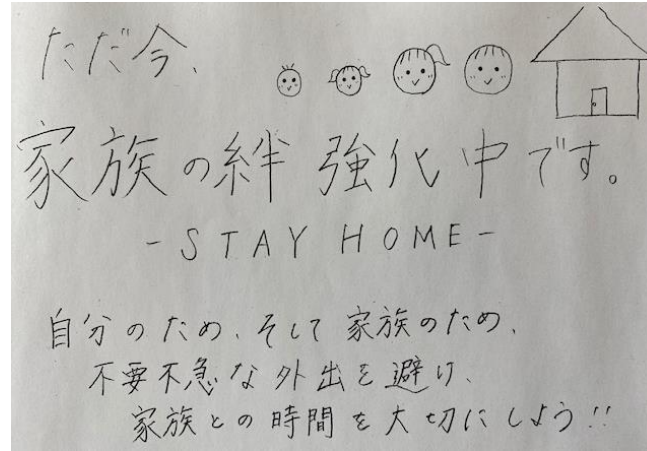 ただ今、
家族の絆 強化中です。
-STAY HOME-
自分のため、そして家族のため、
不要不急な外出を避け、
家族との時間を大切にしよう!!